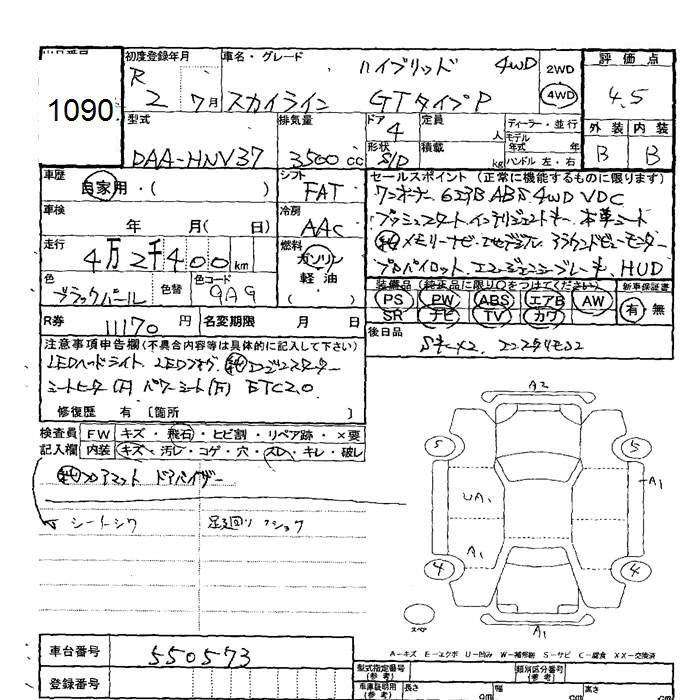 初度登録年月 車名・グレード ハイブリッド 4WD 2WD 評価点
1090 R 2 7月 スカイライン GTタイプP 4WD 4.5
型式 排気量 ドア 4 定員 人 ディーラー・並行 外装 内装
DAA-HNV37 3500cc 形状 S/D 積載 kg モデル年式 年 ハンドル 左・右 B B
車歴 自家用・( ) シフト FAT セールスポイント(正常に機能するものに限ります)
ワンオーナー ABS 4WD VDC
車検 年 月( 日) 冷房 AAC プッシュスタート インテリジェントキー 本革シート
走行 4万2千400km 燃料 ガソリン 軽油 ( ) 純メモリーナビ アラウンドビューモニター
プロパイロット エマージェンシーブレーキ HUD
色 ブラックパール 色替 色コード GAG 装備品(純正品に限り○をつけてください) 新車保証書
PS PW ABS エアB AW 有・無
SR ナビ TV カワ
R券 11170円 名変期限 月 日 後日品
注意事項申告欄(不具合内容等は具体的に記入して下さい) Sキー×2.
LEDヘッドライト LEDフォグ 純エンジンスターター
シートヒーター(F) パワーシート(F) ETC2.0
修復歴 有 〔箇所 〕
検査員 FW キズ・飛石・ヒビ割・リペア跡・×要
記入欄 内装 キズ・汚レ・コゲ・穴・スレ・キレ・破レ
純フロアマット ドアバイザー
シートシワ 足廻り
A2
5 5
A1
UA1
A1
4 4
スペア A1
A-キズ E-エクボ U-凹み W-補修跡 S-サビ C-腐食 XX-交換済
車台番号 550573
型式指定番号(参考) 類別区分番号(参考)
登録番号 車庫証明用(参考) 長さ cm 幅 cm 高さ cm